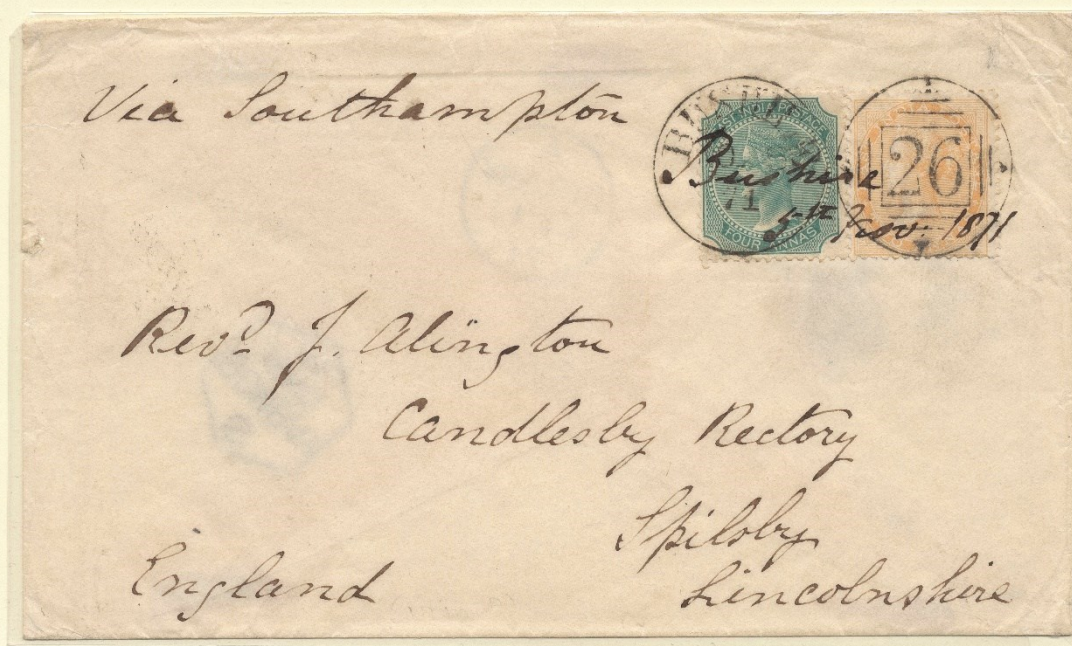 Via Southampton
BUSHIRE
EAST INDIA POSTAGE
71
FOUR ANNAS
26
Bushire
5th Nov. 1871
Revd. J. Alington
Candlesby Rectory
Spilsby
England
Lincolnshire